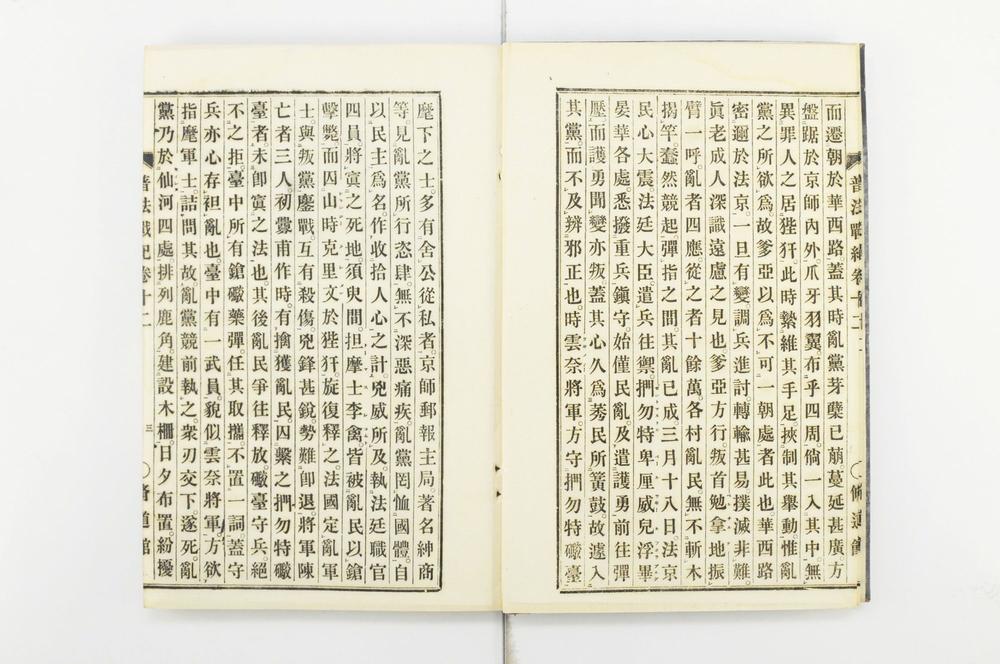 而遷朝於華西路蓋其時亂黨芽櫱已萠蔓延甚廣方
盤踞於京師內外爪牙羽翼布乎四周倘一入其中無
異罪人之居狴犴此時縶維其手足挾制其舉動惟亂
黨之所欲爲故爹亞以爲不可一朝處者此也華西路
密邇於法京一旦有變調兵進討轉輸甚易撲滅非難
眞老成人深識遠慮之見也爹亞方行叛首勉拿地振
臂一呼亂者四應從之者十餘萬各村亂民無不斬木
揭竿蠢然競起彈指之間其亂已成三月十八日法京
民心大震法廷大臣遣兵往禦捫勿特卑厘威兒浮畢
晏華各處悉撥重兵鎭守始僅民亂及遣護勇前往彈
壓而護勇聞變亦叛蓋其心久爲莠民所簧鼓故遽入
其黨而不及辨邪正也時雲奈將軍方守捫勿特礮臺
麾下之士多有舍公從私者京師郵報主局著名紳商
等見亂黨所行恣肆無不深惡痛疾亂黨罔恤國體自
以民主爲名作收拾人心之計兇威所及執法廷職官
四員將寘之死地須臾間担摩士李禽皆被亂民以鎗
擊斃而囚山時克里文於狴犴旋復釋之法國定亂軍
士與叛黨鏖戰互有殺傷兇鋒甚銳勢難卽退將軍陳
亡者三人初釁甫作時有擒獲亂民囚繫之捫勿特礮
臺者未卽寘之法也其後亂民爭往釋放礮臺守兵絕
不之拒臺中所有鎗礮藥彈任其取攜不置一詞蓋守
兵亦心存袒亂也臺中有一武員貌似雲奈將軍方欲
指麾軍士詰問其故亂黨競前執之衆刃交下遂死亂
黨乃於仙河四處排列鹿角建設木柵日夕布置紛擾
普法戰紀卷十二
三